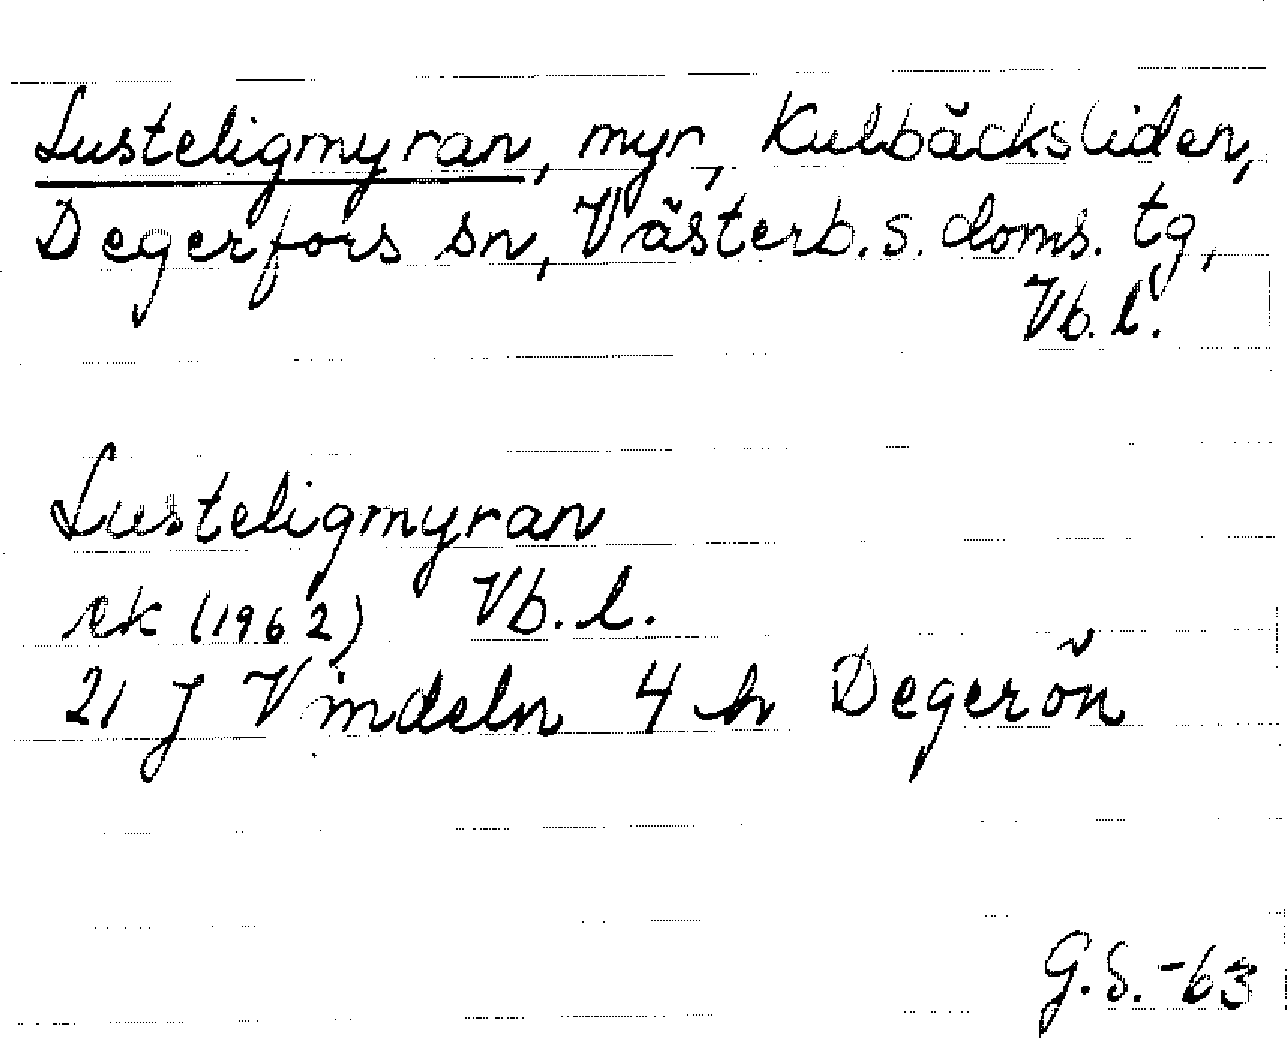 Lusteligmyran, myr, Kulbäcksliden,
Degerfors sn, Västerb. s. doms. tg,
Vb. l.
Lusteligmyran
ek (1962) Vb. l.
21 J Vindeln 4 h Degerön
G.S. -63